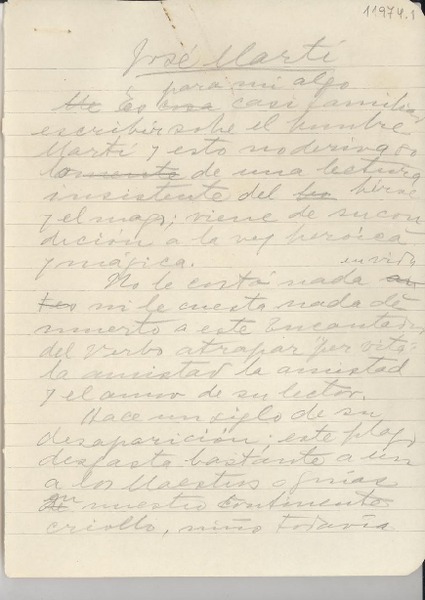 11974.1
José Martí
para mí algo
Me Es una casi familiar
escribir sobre el hombre
Martí y esto no deriva so
lamente de una lectura
insistente del héroe
y el mago; viene de su con
dición a la vez heróica
y mágica.
en vida
No le costó nada an
tes ni le cuesta nada de
muerto a este Encantador
del Verbo atrapar per vita
la amistad la amistad
y el amor de su lector.
Hace un siglo de su
desaparición; este plazo
desgasta bastante a un
a los Maestros o guías
nuestro Continente
criollo, niño todavía